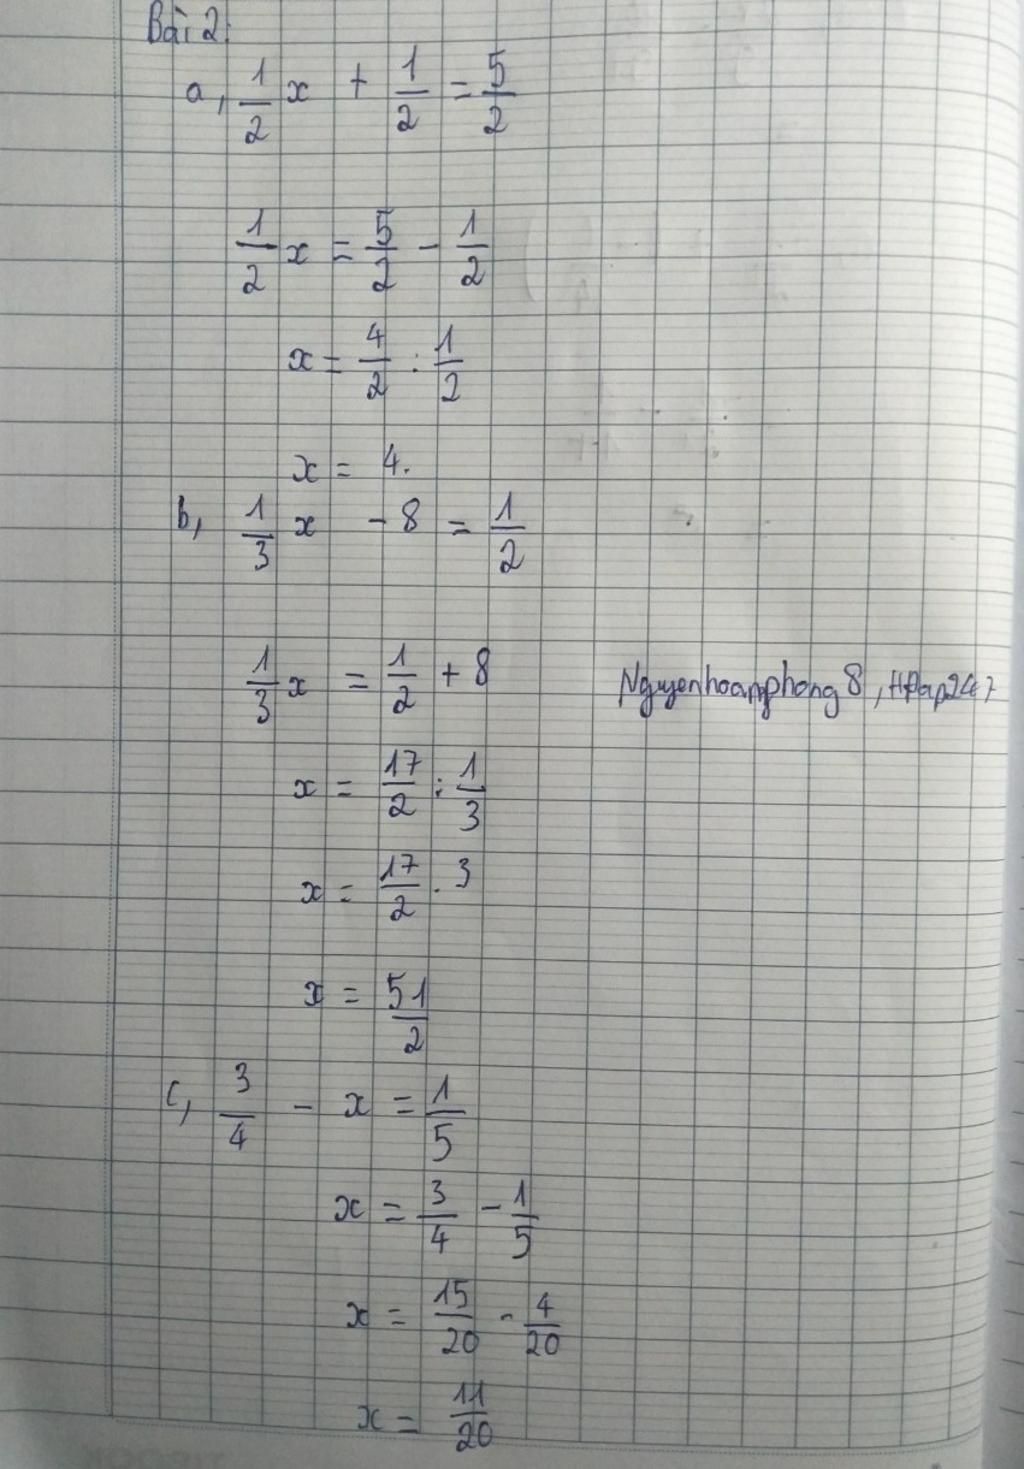 Bài 2:
a, 1/2 x + 1/2 = 5/2
1/2 x = 5/2 - 1/2
x = 4/2 : 1/2
x = 4.
b, 1/3 x - 8 = 1/2
1/3 x = 1/2 + 8
Nguyenhoamphong8,
x = 17/2 : 1/3
x = 17/2 . 3
x = 51/2
c, 3/4 - x = 1/5
x = 3/4 - 1/5
x = 15/20 - 4/20
x = 11/20